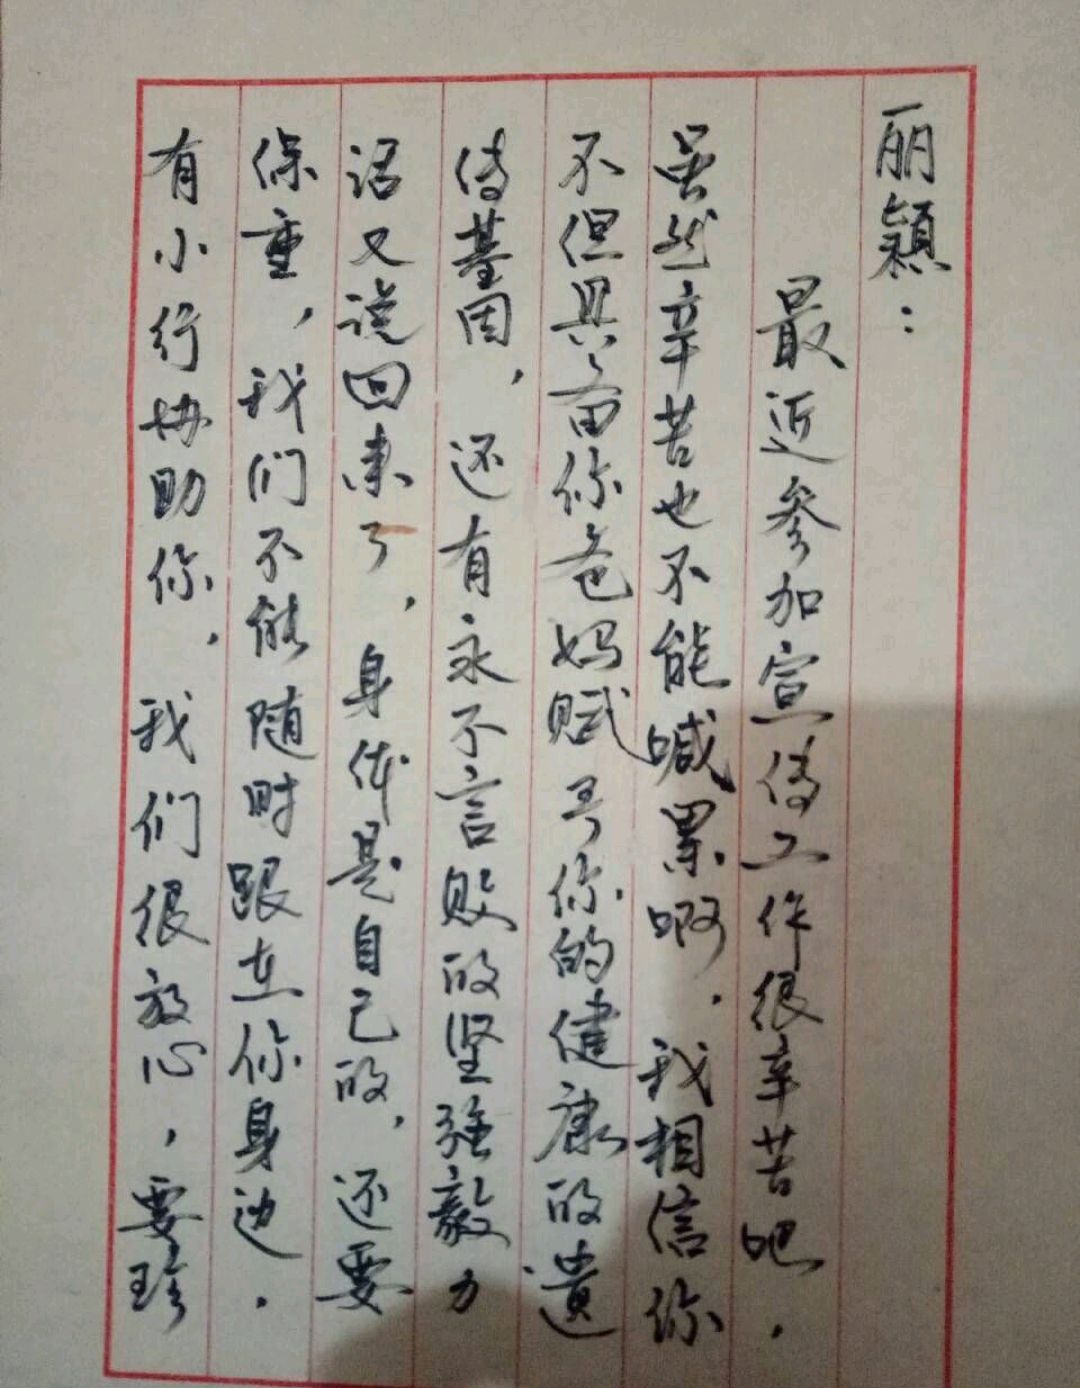 丽颖：
最近参加宣传工作很辛苦吧，
虽然辛苦也不能喊累啊，我相信你
不但具备你爸妈赋予你的健康的遗
传基因，还有永不言败的坚强毅力
话又说回来了，身体是自己的，还要
保重，我们不能随时跟在你身边，
有小行协助你，我们很放心，要珍